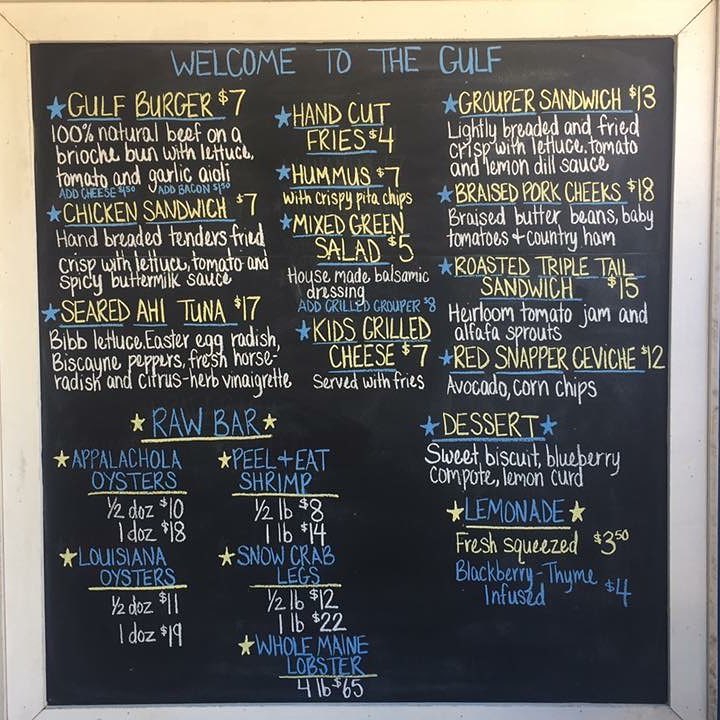 WELCOME TO THE GULF
GULF BURGER $7
100% natural beef on a
brioche bun with lettuce,
tomato and garlic aioli
ADD CHEESE $1.50 ADD BACON $1.50
CHICKEN SANDWICH $7
Hand breaded tenders fried
crisp with lettuce, tomato and
spicy buttermilk sauce
SEARED AHI TUNA $17
Bibb lettuce, Easter egg radish,
Biscayne peppers, fresh horse-
radish and citrus-herb vinaigrette
HAND CUT
FRIES $4
HUMMUS $7
with crispy pita chips
MIXED GREEN
SALAD $5
House made balsamic
dressing
ADD GRILLED GROUPER $8
KIDS GRILLED
CHEESE $7
Served with fries
GROUPER SANDWICH $13
Lightly breaded and fried
crisp with lettuce, tomato
and lemon dill sauce
BRAISED PORK CHEEKS $18
Braised butter beans, baby
tomatoes + country ham
ROASTED TRIPLE TAIL
SANDWICH $15
Heirloom tomato jam and
alfafa sprouts
RED SNAPPER CEVICHE $12
Avocado, corn chips
RAW BAR
APPALACHOLA
OYSTERS
1/2 doz $10
1 doz $18
LOUISIANA
OYSTERS
1/2 doz $11
1 doz $19
PEEL + EAT
SHRIMP
1/2 lb $8
1 lb $14
SNOW CRAB
LEGS
1/2 lb $12
1 lb $22
WHOLE MAINE
LOBSTER
4 lb $65
DESSERT
Sweet biscuit, blueberry
compote, lemon curd
LEMONADE
Fresh squeezed $3.50
Blackberry-Thyme
Infused $4